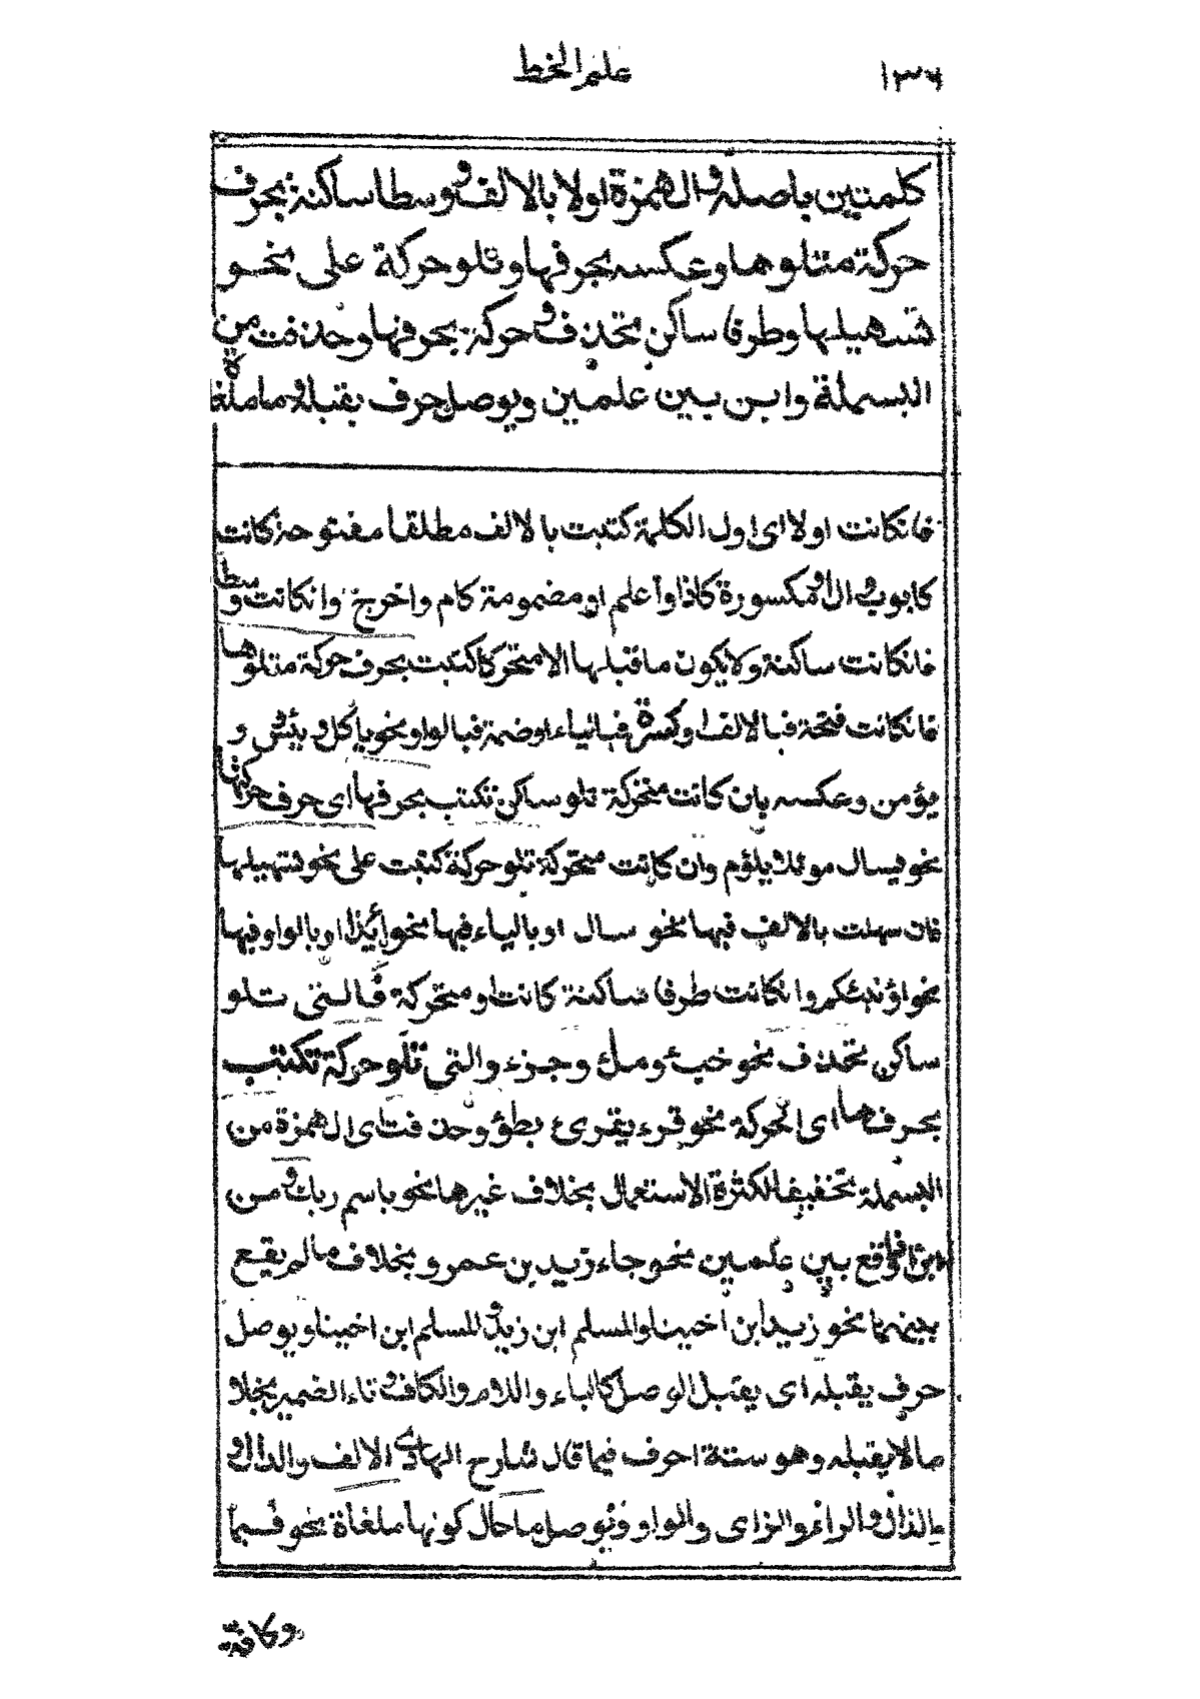 ١٣٦
علم الخط
كلمتين باصله والهمزة اولا بالالف ووسطا ساكنة بحرف
حركة متلوها وعكسه بحرفها وتلو حركة على نحو
تسهيلها وطرفا ساكن تحذف وحركة بحرفها وحذفت من
البسملة وابن بين علمين ويوصل حرف يقبله وما ملغاة
فانكانت اولا اى اول الكلمة كتبت بالالف مطلقا مفتوحة كانت
كايوب وال او مكسورة كاذا واعلم او مضمومة كام واخرج وانكانت وسطا
فانكانت ساكنة ولا يكون ما قبلها الا متحركا كتبت بحرف حركة متلوها
فانكانت فتحة فبالالف او كسرة فبالياء او ضمة فبالواو نحو ياكل وبئس و
يؤمن وعكسه بان كانت متحركة تلو ساكن تكتب بحرفها اى حرف حركتها
نحو يسال موئلا يلؤم وان كانت متحركة تلو حركة كتبت على نحو تسهيلها
فان سهلت بالالف فبها نحو سال او بالياء فبها نحو ائذا او بالواو فبها
نحو اؤنبئكم وانكانت طرفا ساكنة كانت او متحركة فالتى تلو
ساكن تحذف نحو خبء وملء وجزء والتى تلو حركة تكتب
بحرفها اى الحركة نحو قرء يقرئ بطؤ وحذفت اى الهمزة من
البسملة تخفيفا لكثرة الاستعمال بخلاف غيرها نحو باسم ربك ومن
ابن واقع بين علمين نحو جاء زيد بن عمرو بخلاف ما لم يقع
بينهما نحو زيد ابن اخينا والمسلم ابن زيد والمسلم ابن اخينا ويوصل
حرف يقبله اى يقبل الوصل كالباء واللام والكاف وتاء الضمير بخلاف
ما لا يقبله وهو ستة احرف فيما قال شارح الهادى الالف والدال و
الذال والراء والزاى والواو وتوصل ما حال كونها ملغاة نحو فبما
وكافة